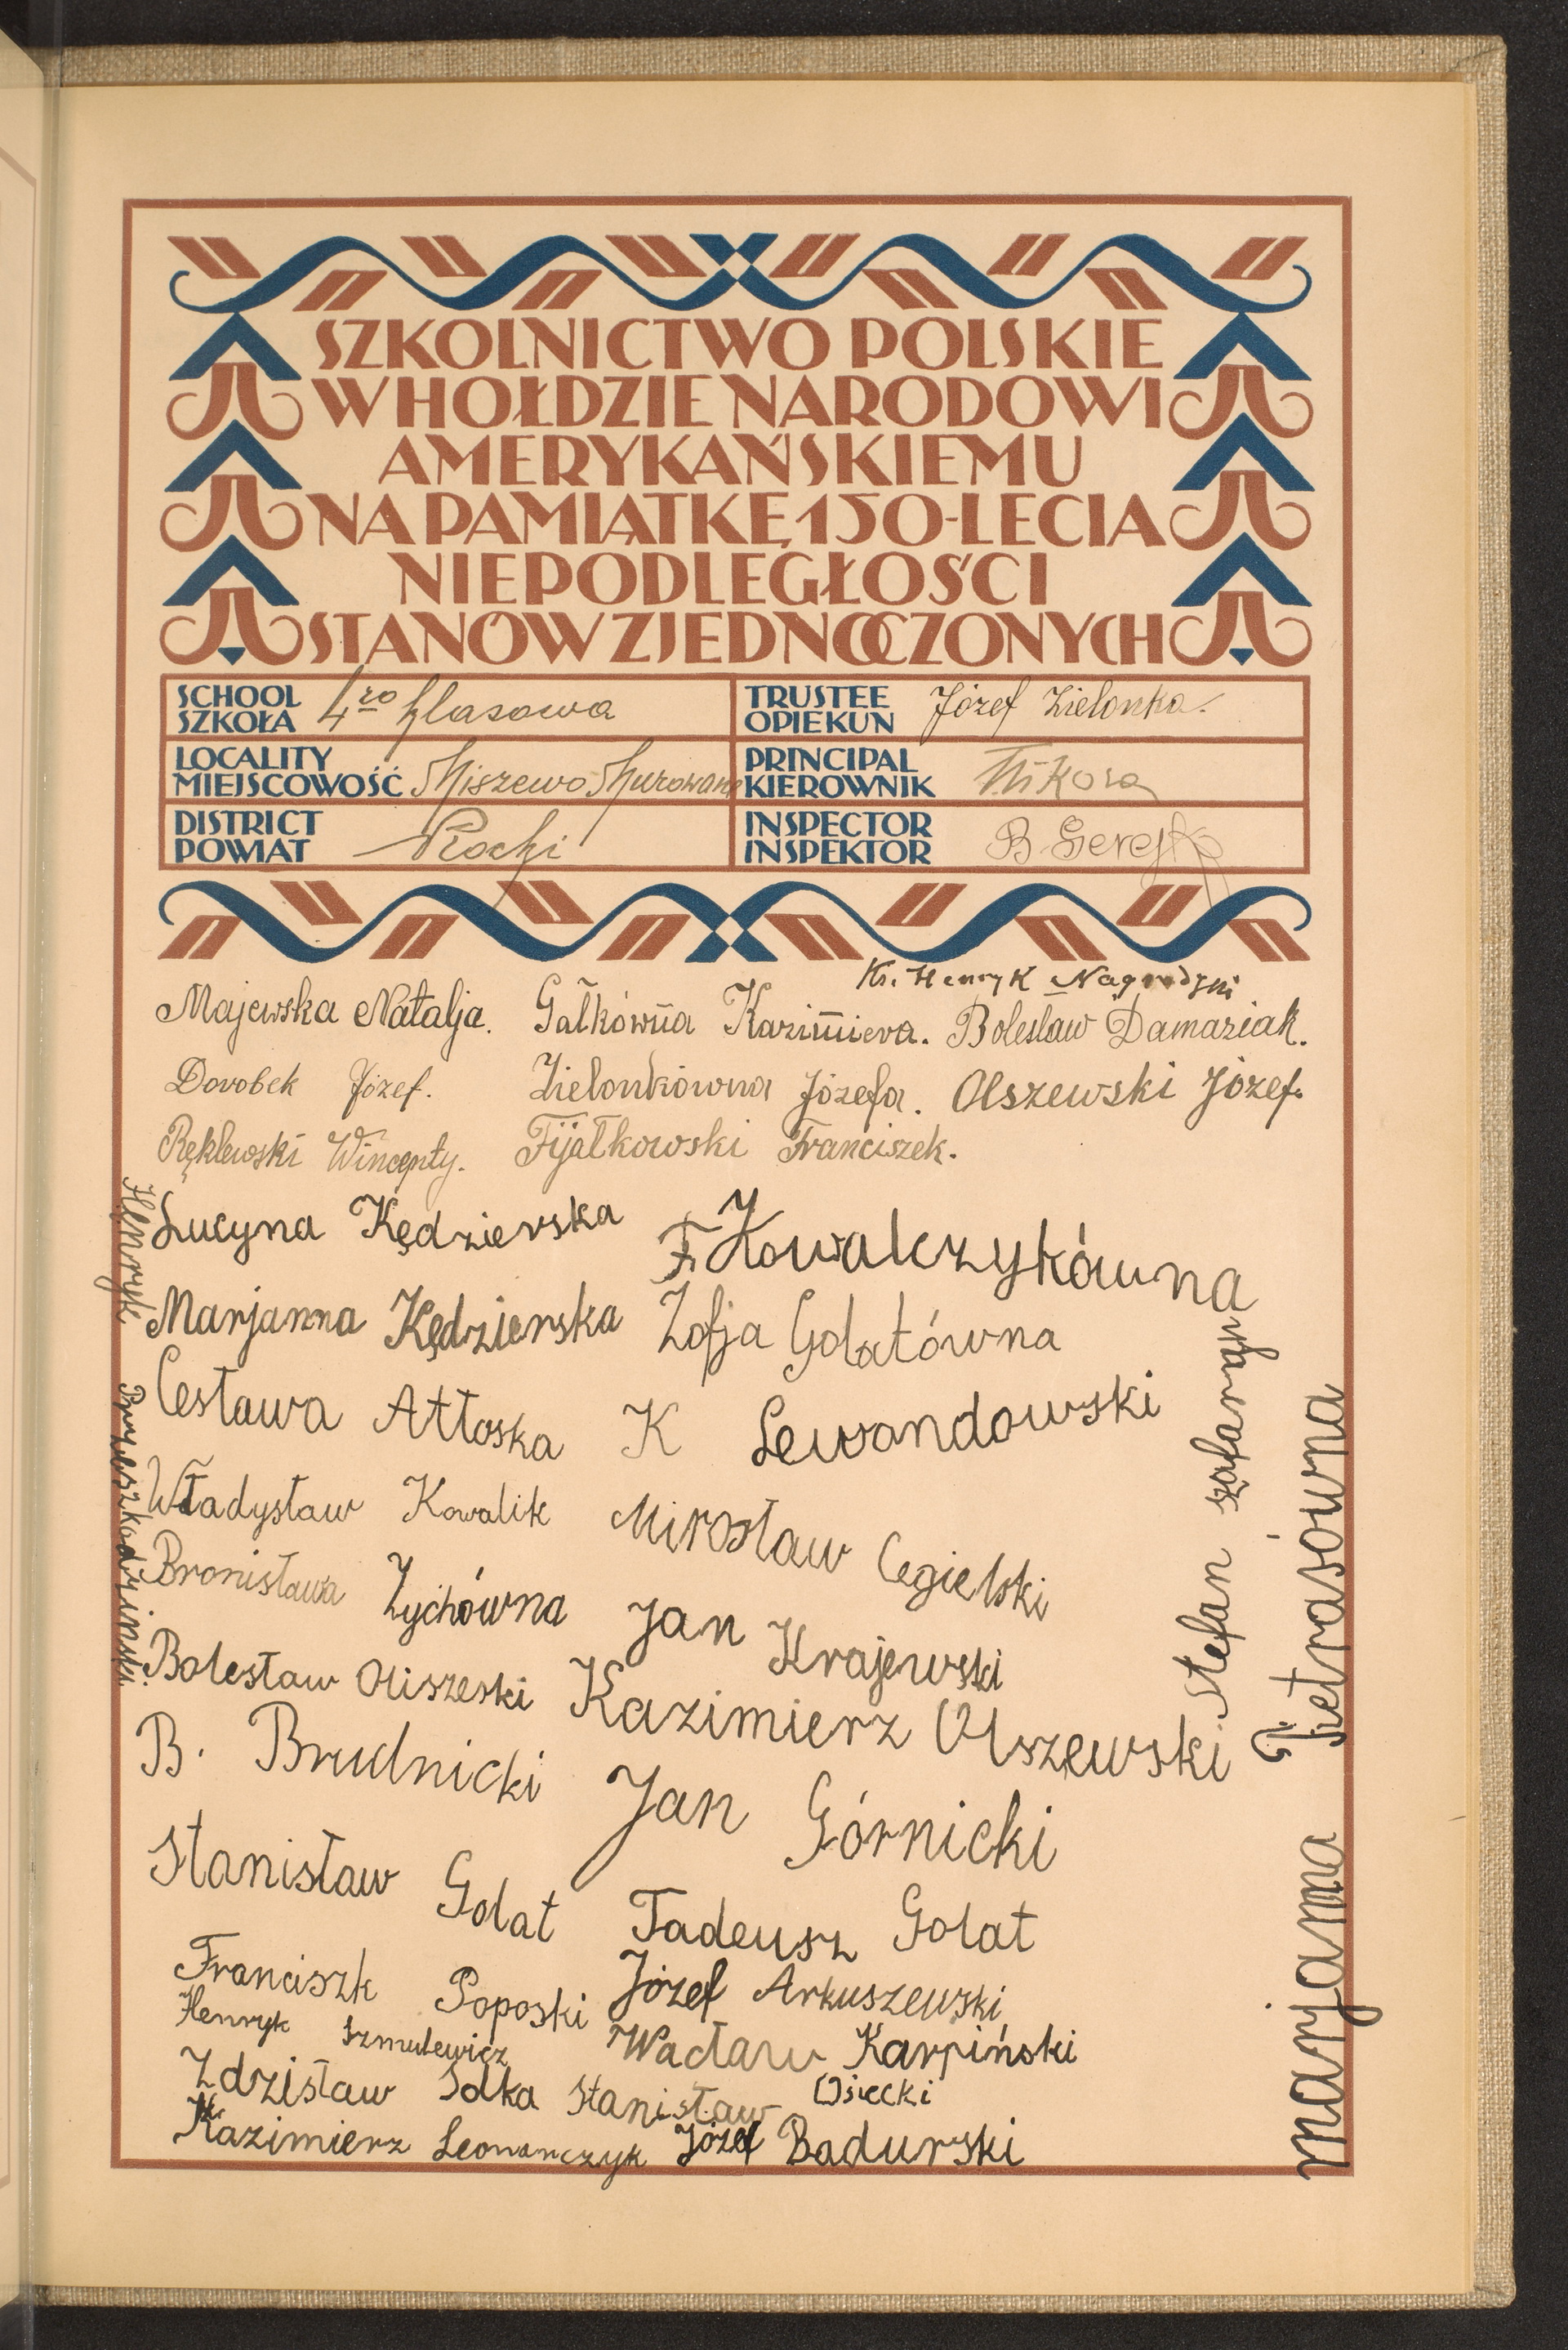 SZKOLNICTWO POLSKIE
W HOŁDZIE NARODOWI
AMERYKAŃSKIEMU
NA PAMIĄTKĘ 150-LECIA
NIEPODLEGŁOŚCI
STANÓW ZJEDNOCZONYCH
SCHOOL
SZKOŁA 4ro klasowa
TRUSTEE
OPIEKUN Józef Zielonka.
LOCALITY
MIEJSCOWOŚĆ Miszewo Murowane
PRINCIPAL
KIEROWNIK
DISTRICT
POWIAT Płocki
INSPECTOR
INSPEKTOR B
Ks. Henryk
Majewska Natalja. Gałkówna Kazimiera. Bolesław Damaziak.
Dorobek Józef. Zielonkówna Józefa. Olszewski Józef.
Ręklewski Wincenty. Fijałkowski Franciszek.
Lucyna Kędzierska F. Kowalczykówna
Marjanna Kędzierska Zofja Golatówna
Cesława Attoska K Lewandowski
Władysław Kowalik Mirosław Cegielski
Bronisława Zychówna Jan Krajewski
Bolesław Oliszeski Kazimierz Olszewski
B. Brudnicki Jan Górnicki
Stanisław Golat Tadeusz Golat
Franciszk Poposki Józef Arkuszewski
Henryk Szmulewicz Wacław Karpiński
Zdzisław Solka Stanisław Osiecki
Kazimierz Leonarczyk Józef Badurski
Henryk
Stefan
marjanna Pietrasówna